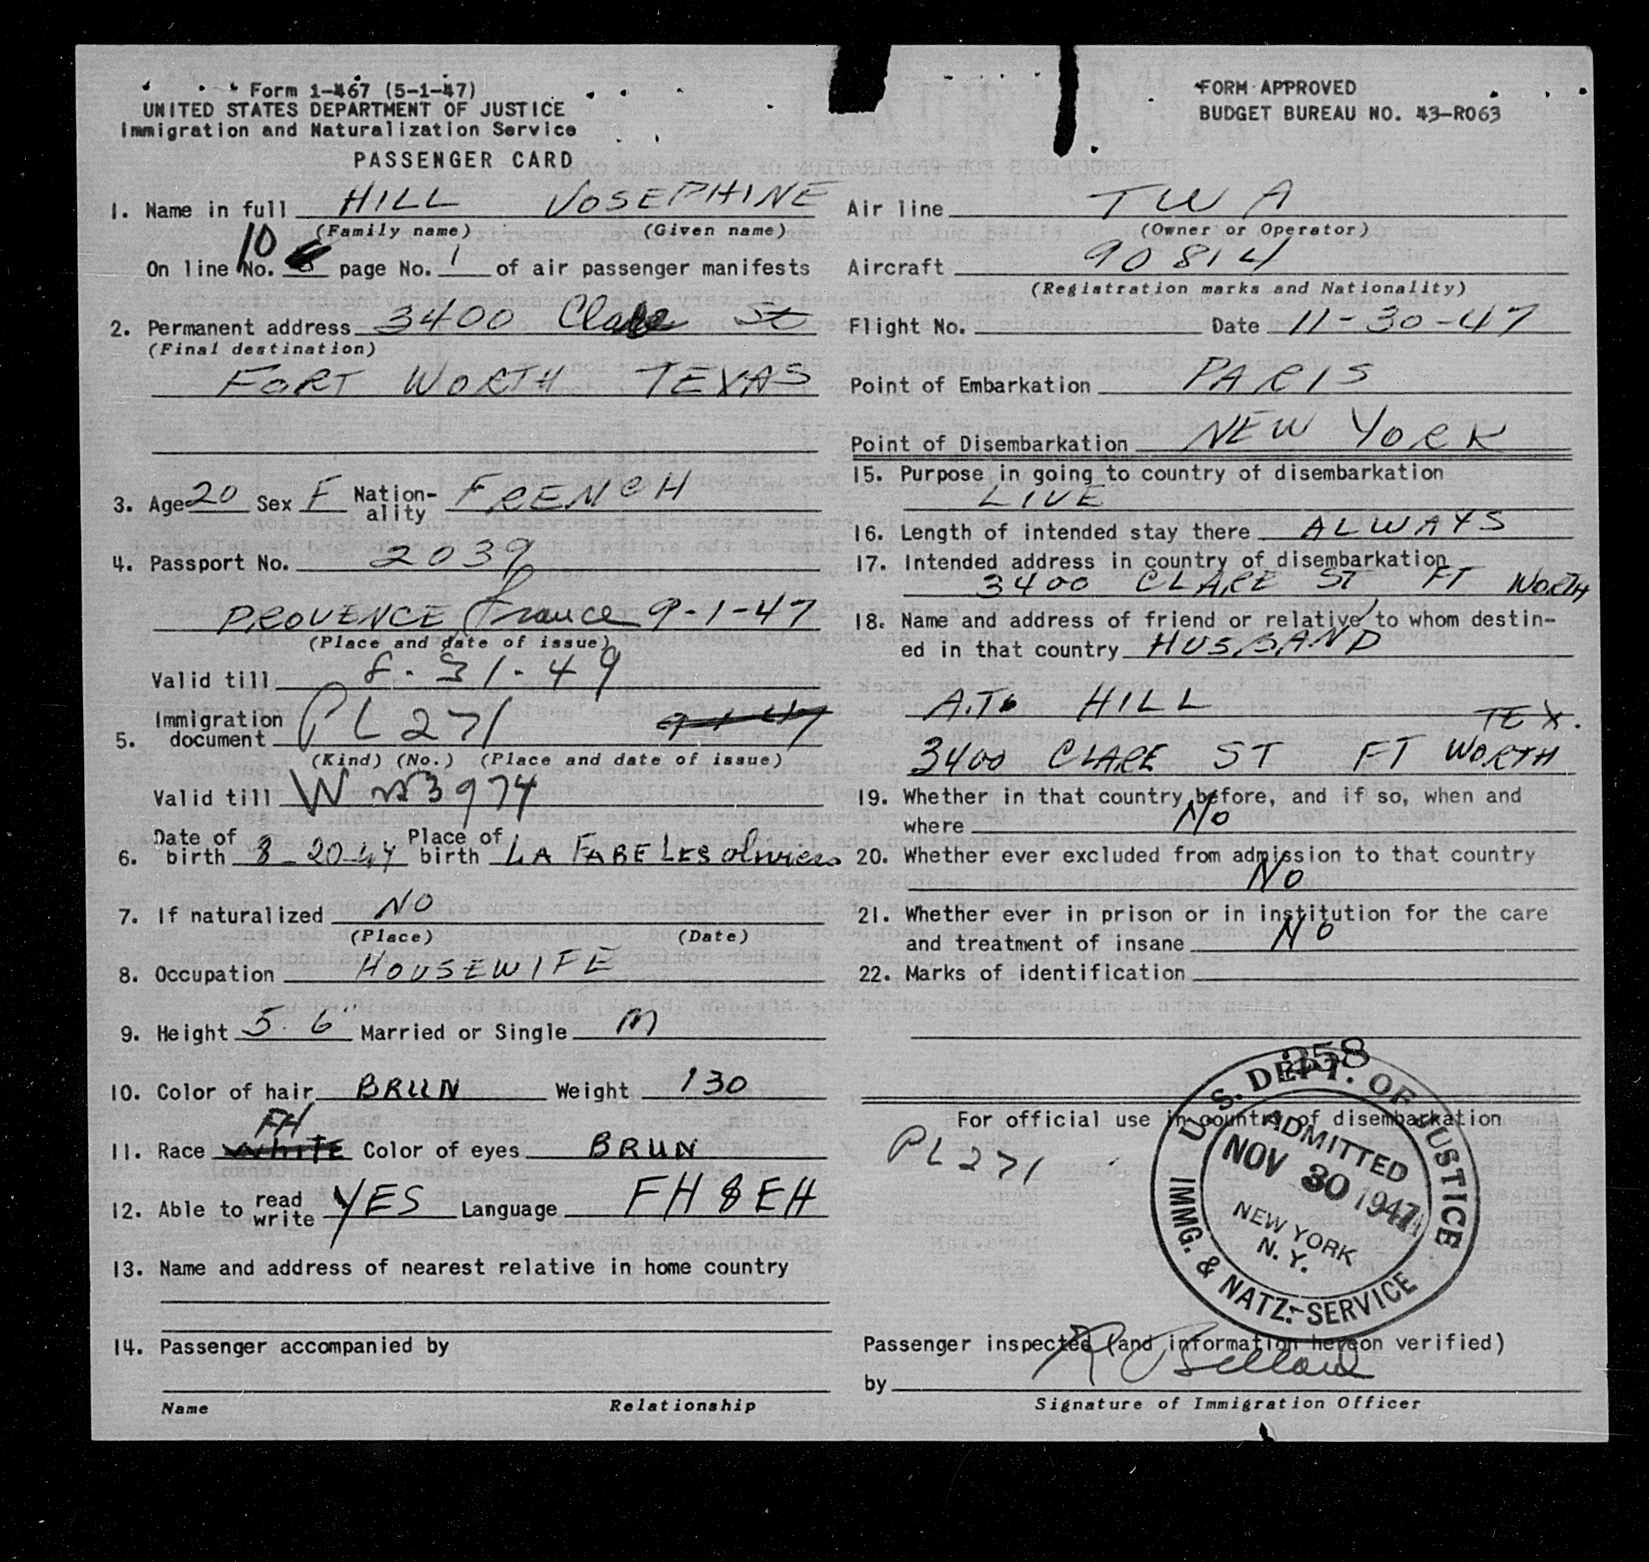 Form 1-467 (5-1-47)
UNITED STATES DEPARTMENT OF JUSTICE
Immigration and Naturalization Service
PASSENGER CARD
FORM APPROVED
BUDGET BUREAU NO. 43-R063
1. Name in full HILL JOSEPHINE
(Family name) (Given name)
10
On line No. page No. 1 of air passenger manifests
2. Permanent address 3400 Clare St
(Final destination)
FORT WORTH TEXAS
3. Age 20 Sex F Nation-ality FRENCH
4. Passport No. 2039
PROVENCE France 9-1-47
(Place and date of issue)
Valid till 8-31-49
5. Immigration document PL 271
(Kind) (No.) (Place and date of issue)
Valid till
6. Date of birth Place of birth LA FARE LES oliviers
7. If naturalized NO
(Place) (Date)
8. Occupation HOUSEWIFE
9. Height 5. 6" Married or Single M
10. Color of hair BRUN Weight 130
FH
11. Race White Color of eyes BRUN
12. Able to read write YES Language FH & EH
13. Name and address of nearest relative in home country
14. Passenger accompanied by
Name Relationship
Air line TWA
(Owner or Operator)
Aircraft 90814
(Registration marks and Nationality)
Flight No. Date 11-30-47
Point of Embarkation PARIS
Point of Disembarkation NEW YORK
15. Purpose in going to country of disembarkation
LIVE
16. Length of intended stay there ALWAYS
17. Intended address in country of disembarkation
3400 CLARE ST FT WORTH
18. Name and address of friend or relative to whom destin-
ed in that country HUSBAND
HILL
TEX.
3400 CLARE ST FT WORTH
19. Whether in that country before, and if so, when and
where No
20. Whether ever excluded from admission to that country
No
21. Whether ever in prison or in institution for the care
and treatment of insane No
22. Marks of identification
258
For official use in country of disembarkation
PL 271
U.S. DEPT. OF JUSTICE
ADMITTED
NOV 30 1947
NEW YORK
N. Y.
IMMG. & NATZ. SERVICE
Passenger inspected (and information hereon verified)
by
Signature of Immigration Officer